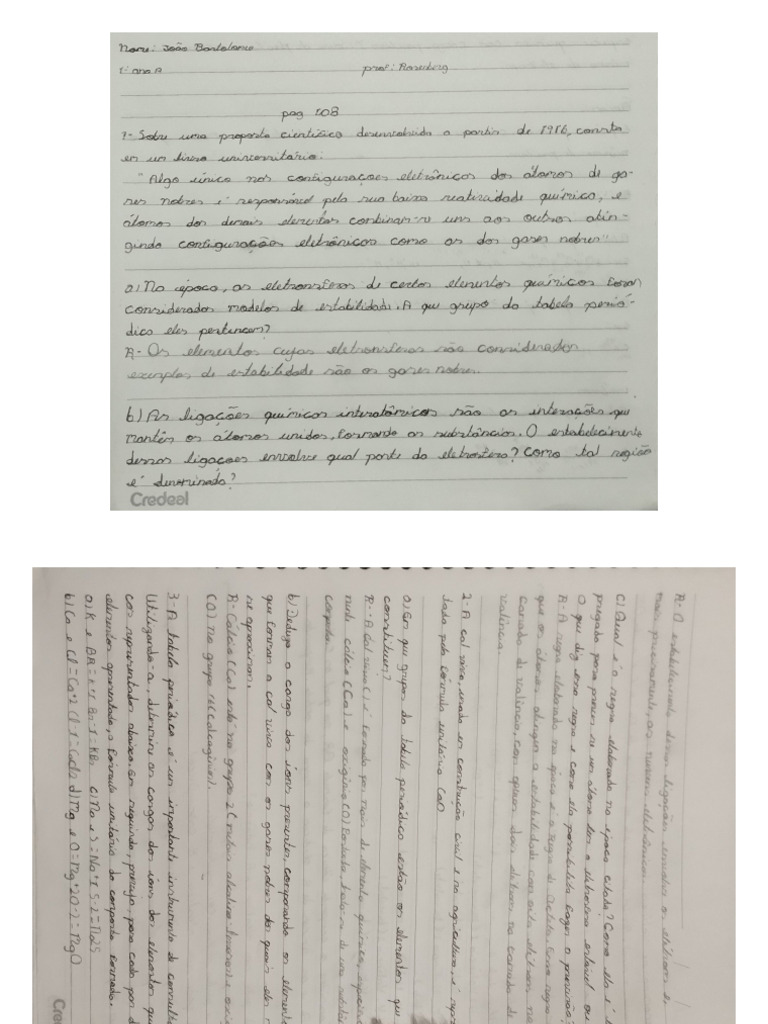 Nome: João Bartolomeu
1° ano A prof: Rosenberg
pag 108
1- Sobre uma proposta científica desenvolvida a partir de 1916, consta
em um livro universitário:
"Algo único nas configurações eletrônicas dos átomos de ga-
ses nobres é responsável pela sua baixa reatividade química, e
átomos dos demais elementos combinam-se uns aos outros atin-
gindo configurações eletrônicas como as dos gases nobres"
a) Na época, as eletrosferas de certos elementos químicos foram
consideradas modelos de estabilidade. A que grupo da tabela perió-
dica eles pertencem?
R- Os elementos cujas eletrosferas são consideradas
exemplos de estabilidade são os gases nobres.
b) As ligações químicas interatômicas são as interações que
mantém os átomos unidos, formando as substâncias. O estabelecimento
dessas ligações envolve qual parte da eletrosfera? Como tal região
é denominada?
Credeal
R- O estabelecimento dessas ligações envolve os elétrons e,
mais precisamente, as nuvens eletrônicas.
C) Qual é a regra elaborada na época citada? Como ela é
pregada para prever se um átomo tem a eletrosfera estável ou
O que diz essa regra e como ela possibilita fazer a previsão?
R- A regra elaborada na época é a Regra do Octeto. Essa regra
que os átomos atingem a estabilidade com oito elétrons na
camada de valência, com apenas dois elétrons na camada de
valência.
2- A cal viva, usada em construção civil e na agricultura, é repre
tada pela fórmula unitária CaO
a) Em que grupos da tabela periódica estão os elementos que
constituem?
R- A cal viva é formada por mais de elemento químico,
cálcio (Ca) e oxigênio (O)
b) Deduza a carga dos íons presentes, comparando os elemento
que formam a cal viva com os gases nobres dos quais eles m
se aproximam.
R- Cálcio (Ca) está no grupo 2 (metais alcalino terrosos) e oxig
(O) no grupo 16 (Calcogênios).
3- A tabela periódica é um importante instrumento de consulta
Utilizando-a, determine as cargas dos íons dos elementos qu
representados abaixo. Em seguida, preveja, para cada par d
elementos apresentado, a fórmula unitária do composto formado.
a) K e BR = K+1 Br-1 = KBr c) Na e S = Na+1 S-2 = Na2S
b) Ca e Cl = Ca+2 Cl-1 = CaCl2 d) Mg e O = Mg+2 O-2 = MgO
Credeal